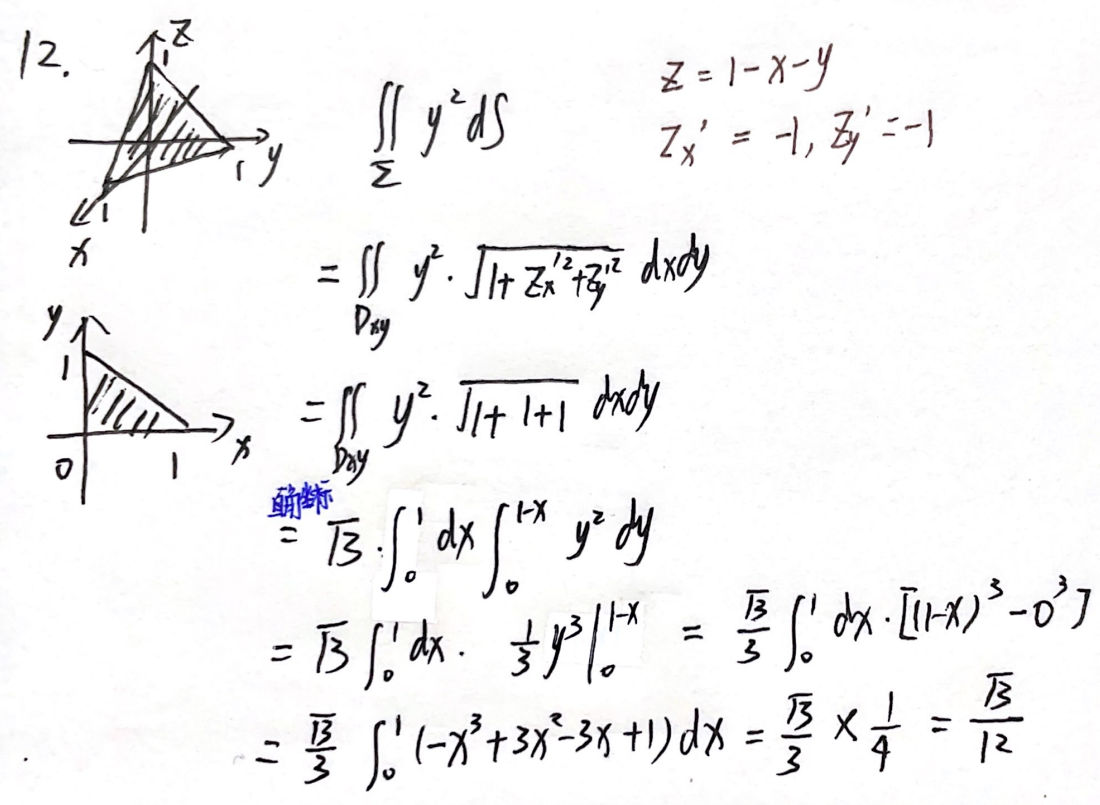 12.
z
1
y
1
x
1
∬_Σ y² dS
z = 1-x-y
Zx' = -1, Zy' = -1
= ∬_Dxy y² · √(1+Zx'²+Zy'²) dxdy
y
1
0
1
x
= ∬_Dxy y² · √(1+1+1) dxdy
直角坐标
= √3 · ∫₀¹ dx ∫₀^(1-x) y² dy
= √3 ∫₀¹ dx · 1/3 y³ |₀^(1-x) = √3/3 ∫₀¹ dx · [(1-x)³ - 0³]
= √3/3 ∫₀¹ (-x³+3x²-3x+1) dx = √3/3 × 1/4 = √3/12